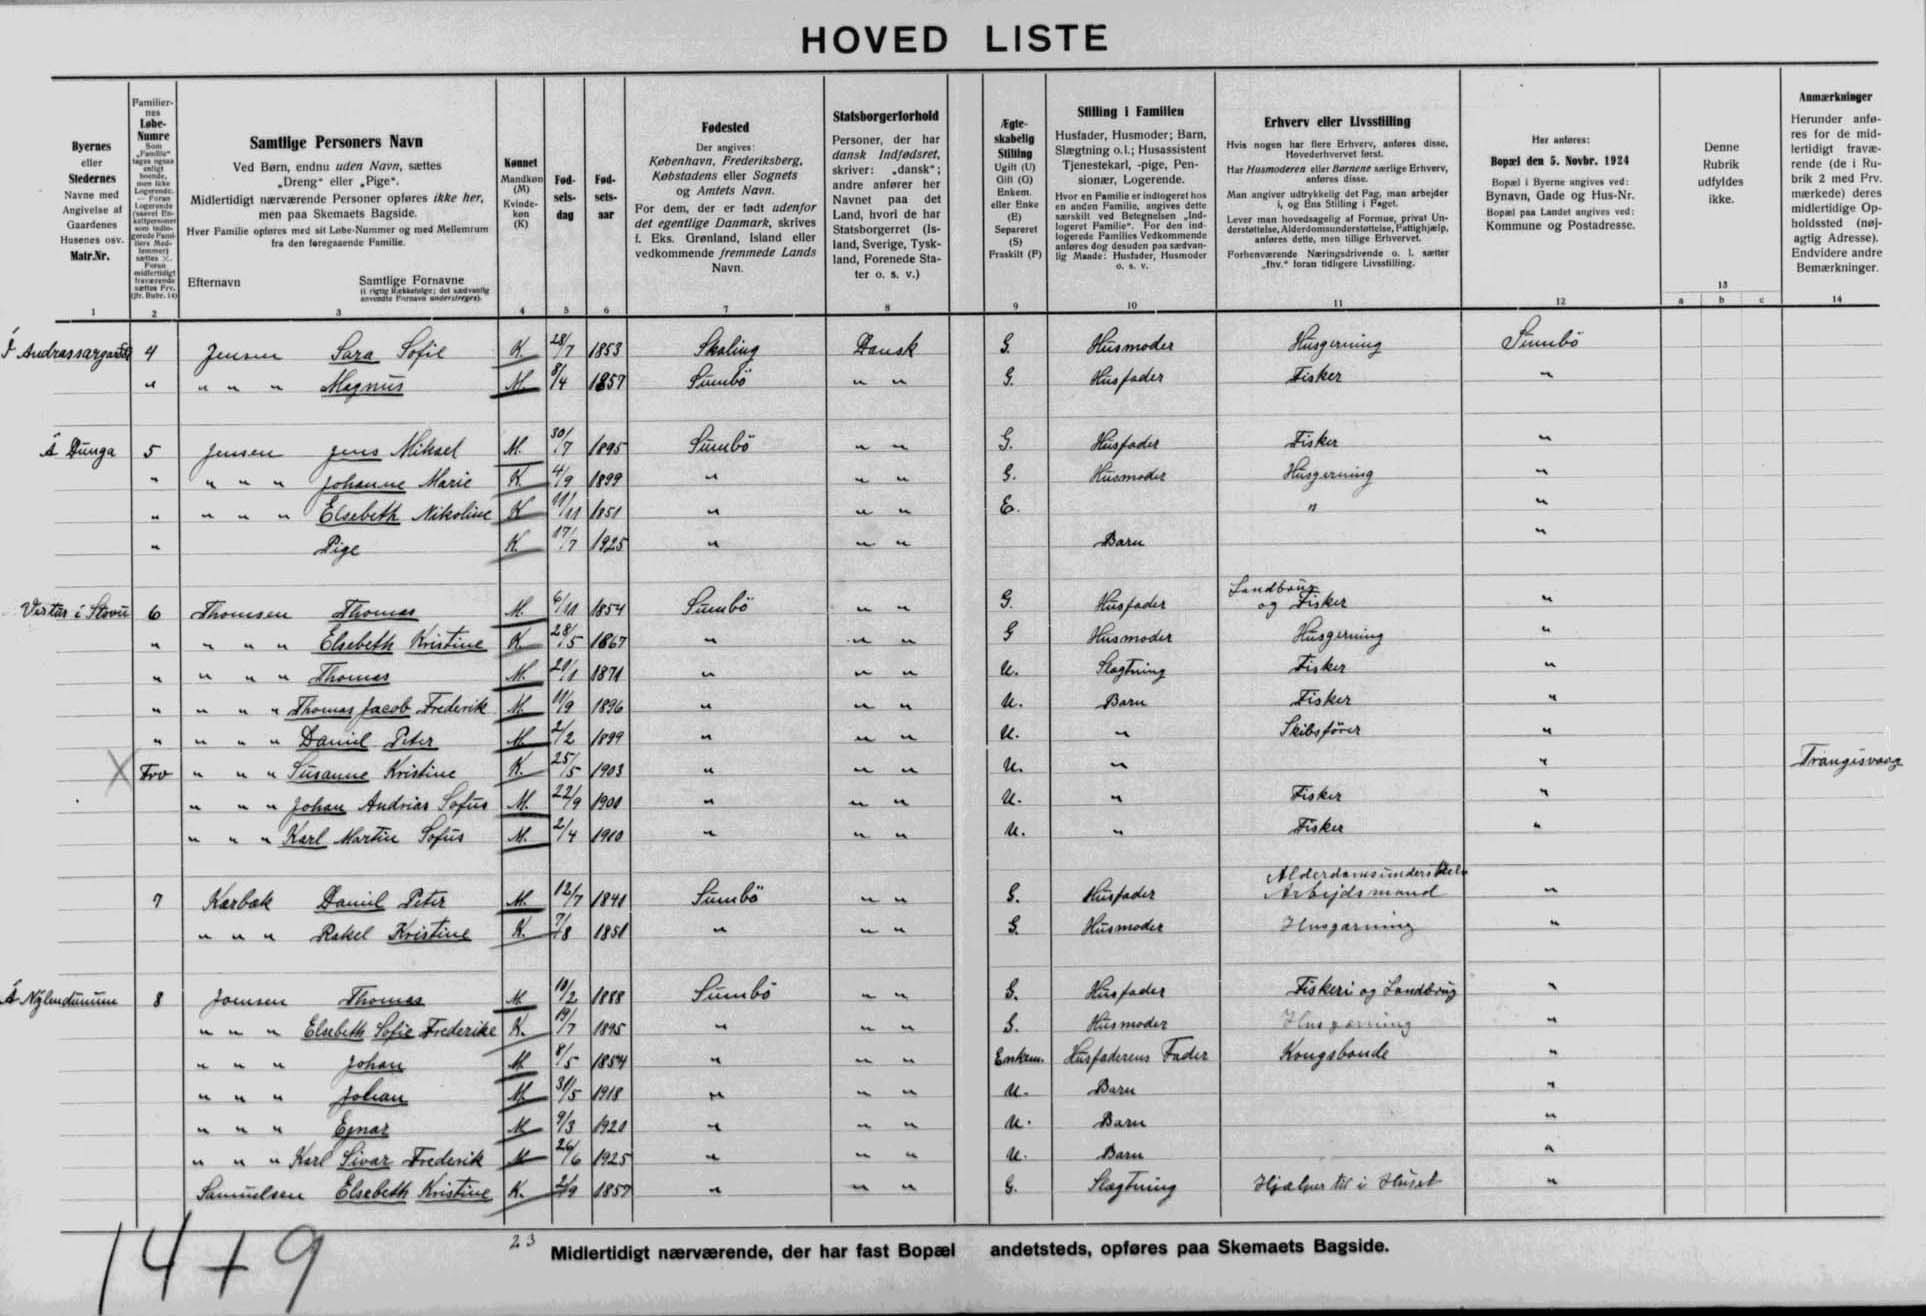 HOVED LISTE
Byernes
eller
Stedernes
Navne med
Angivelse af
Gaardenes
Husenes osv.
Matr.Nr.
1
Familier-
nes
Løbe-
Numre
2
Samtlige Personers Navn
Ved Børn, endnu uden Navn, sættes
„Dreng“ eller „Pige“.
Midlertidigt nærværende Personer opføres ikke her,
men paa Skemaets Bagside.
Hver Familie opføres med sit Løbe-Nummer og med Mellemrum
fra den foregaaende Familie.
Efternavn Samtlige Fornavne
(i rigtig Rækkefølge; det sædvanlig
anvendte Fornavn understreges).
3
Kønnet
Mandkøn
(M)
Kvinde-
køn
(K)
4
Fød-
sels-
dag
5
Fød-
sels-
aar
6
Fødested
Der angives:
København, Frederiksberg,
Købstadens eller Sognets
og Amtets Navn.
For dem, der er født udenfor
det egentlige Danmark, skrives
f. Eks. Grønland, Island eller
vedkommende fremmede Lands
Navn.
7
Statsborgerforhold
Personer, der har
dansk Indfødsret,
skriver: „dansk“;
andre anfører her
Navnet paa det
Land, hvori de har
Statsborgerret (Is-
land, Sverige, Tysk-
land, Forenede Sta-
ter o. s. v.)
8
Ægte-
skabelig
Stilling
Ugift (U)
Gift (G)
Enkem.
eller Enke
(E)
Separeret
(S)
Fraskilt (F)
9
Stilling i Familien
Husfader, Husmoder; Barn,
Slægtning o.l.; Husassistent
Tjenestekarl, -pige, Pen-
sionær, Logerende.
Hvor en Familie er indlogeret hos
en anden Familie, angives dette
særskilt ved Betegnelsen „Ind-
logeret Familie“. For den ind-
logerede Families Vedkommende
anføres dog desuden paa sædvan-
lig Maade: Husfader, Husmoder
o. s. v.
10
Erhverv eller Livsstilling
Hvis nogen har flere Erhverv, anføres disse,
Hovederhvervet først.
Har Husmoderen eller Børnene særlige Erhverv,
anføres disse.
Man angiver udtrykkelig det Fag, man arbejder
i, og Ens Stilling i Faget.
Lever man hovedsagelig af Formue, privat Un-
derstøttelse, Alderdomsunderstøttelse, Fattighjælp,
anføres dette, men tillige Erhvervet.
Forhenværende Næringsdrivende o. l. sætter
„fhv.“ foran tidligere Livsstilling.
11
Her anføres:
Bopæl den 5. Novbr. 1924
Bopæl i Byerne angives ved:
Bynavn, Gade og Hus-Nr.
Bopæl paa Landet angives ved:
Kommune og Postadresse.
12
Denne
Rubrik
udfyldes
ikke.
13
a b c
Anmærkninger
Herunder anfø-
res for de mid-
lertidigt fravæ-
rende (de i Ru-
brik 2 med Frv.
mærkede) deres
midlertidige Op-
holdssted (nøj-
agtig Adresse).
Endvidere andre
Bemærkninger.
14
4 Jensen Sara Sofie K. 28/7 1853 Skaling Dansk G. Husmoder Husgerning Sumbö
" " " " Magnus M. 8/4 1857 Sumbö " " G. Husfader Fisker "
Á Dunga 5 Jensen Jens Mikael M. 30/7 1895 Sumbö " " G. Husfader Fisker "
" " " " Johanne Marie K. 4/9 1899 " " " G. Husmoder Husgerning "
" " " " Elsebeth Nikoline K 11/11 1851 " " " E. " "
" Pige K. 17/7 1925 " " " Barn "
Vestur i Stovu 6 Thomsen Thomas M. 6/11 1854 Sumbö " " G. Husfader Landbrug og Fisker "
" " " " Elsebeth Kristine K. 28/5 1867 " " " G Husmoder Husgerning "
" " " " Thomas M. 20/1 1871 " " " U. Slægtning Fisker "
" " " " Thomas Jacob Frederik M. 11/9 1896 " " " U. Barn Fisker "
" " " " Daniel Peter M. 2/2 1899 " " " U. " Skibsfører "
X Frv " " " Susanne Kristine K. 25/5 1903 " " " U. " " Trangisvaag
" " " Johan Andrias Sofus M. 22/9 1901 " " " U. " Fisker "
" " " Karl Martin Sofus M. 2/4 1910 " " " U. " Fisker "
7 Kærbæk Daniel Peter M. 12/7 1841 Sumbö " " G. Husfader Arbejdsmand "
" " " Rakel Kristine K. 7/8 1851 " " " G. Husmoder Husgærning "
Á Nýlendunum 8 Joensen Thomas M 10/2 1888 Sumbö " " G. Husfader Fiskeri og Landbrug "
" " " Elsebeth Sofie Frederike K. 19/7 1895 " " " G. Husmoder Husgærning "
" " " Johan M 8/5 1854 " " " Enkem. Husfaderens Fader Kongsbonde "
" " " Johan M. 31/5 1918 " " " U. Barn "
" " " Ejnar M 9/3 1920 " " " U. Barn "
" " " Karl Sivar Frederik M 26/6 1925 " " " U. Barn "
Samuelsen Elsebeth Kristine K. 1857 " " " G. Slægtning Hjælper til i Huset "
14+9
23
Midlertidigt nærværende, der har fast Bopæl andetsteds, opføres paa Skemaets Bagside.